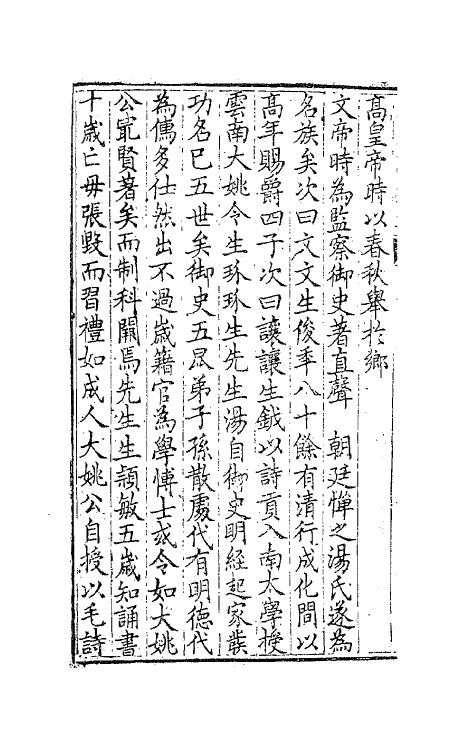 高皇帝時以春秋舉扵鄉
文帝時為監察御史著直聲　朝廷憚之湯氏遂為
名族矣次曰文文生俊年八十餘有清行成化間以
髙年賜爵四子次曰讓讓生鉞以詩貢入南太學授
雲南大姚令生珎珎生先生湯自御史明經起家裝
功名已五世矣御史五昆弟子孫散處代有明德代
為儒多仕然出不過歲籍官為學博士或令如大姚
公寔賢著矣而制科闢焉先生生頴敏五歲知誦書
十歲亡母張毀而習禮如成人大姚公自授以毛詩